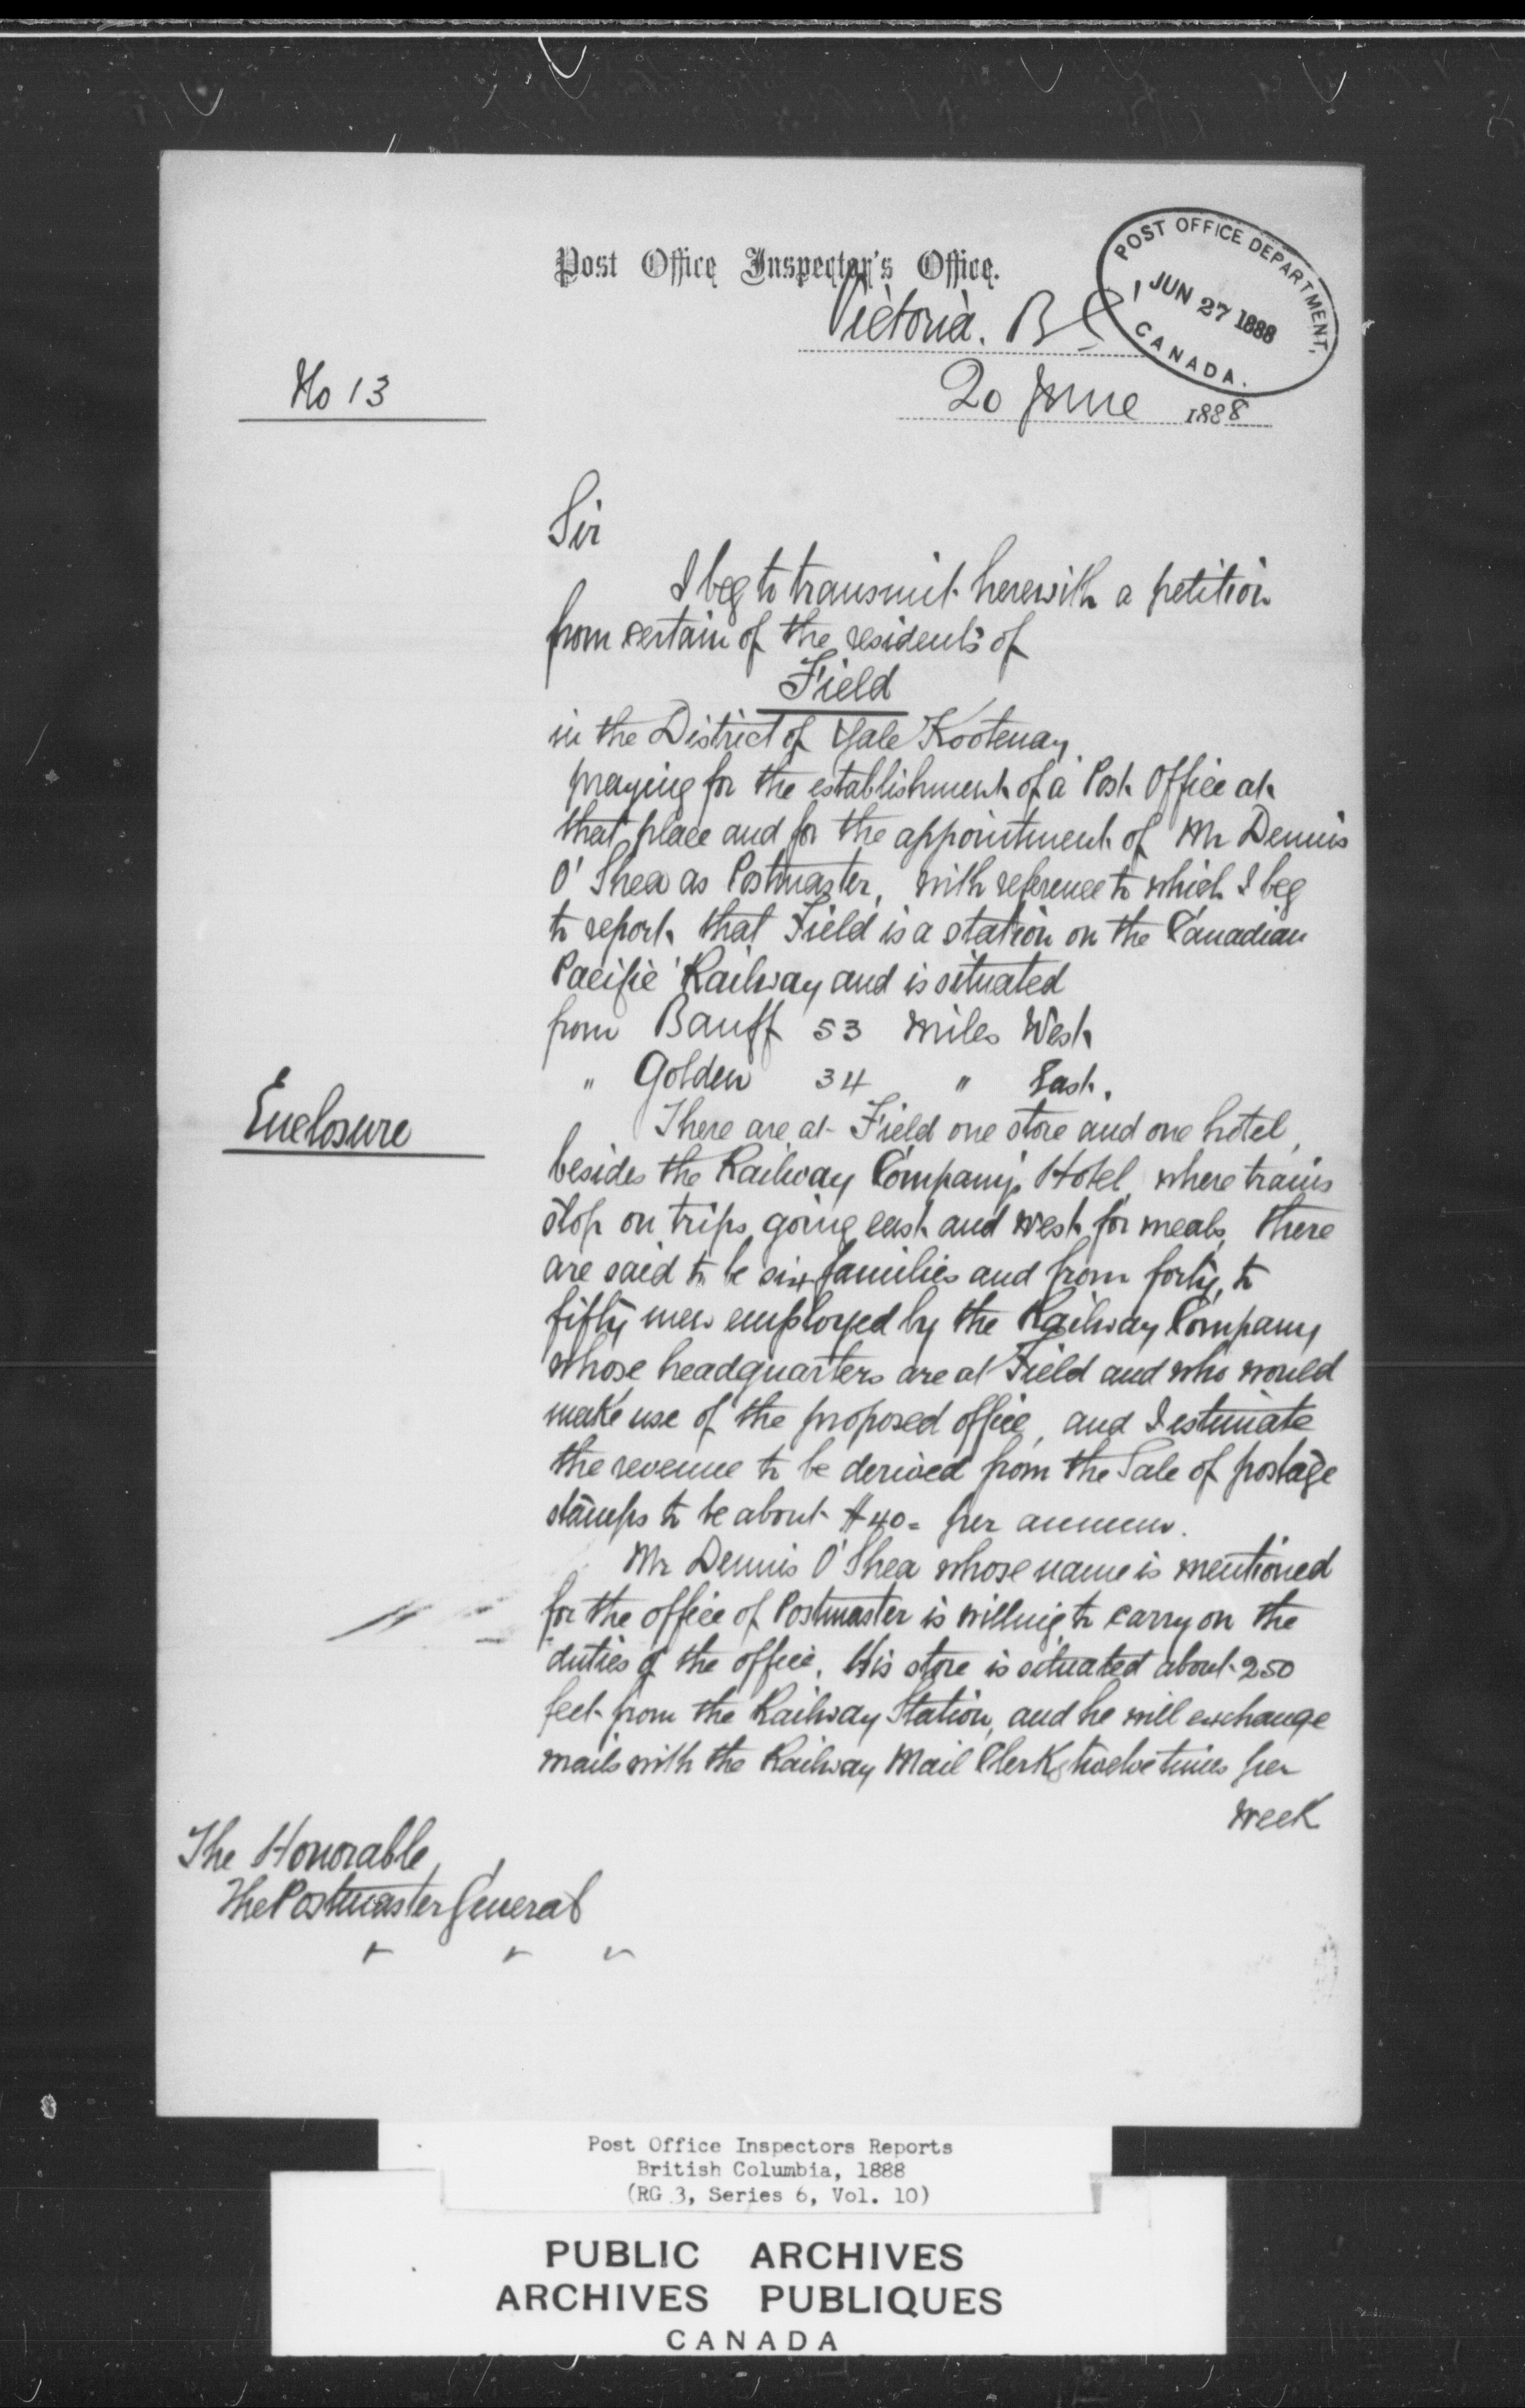 Post Office Inspector's Office.
POST OFFICE DEPARTMENT,
JUN 27 1888
CANADA.
Victoria. B C
No 13
20 June 1888
Sir
I beg to transmit herewith a petition
from certain of the residents of
Field
in the District of Yale Kootenay
praying for the establishment of a Post Office at
that place and for the appointment of Mr Dennis
O'Shea as Postmaster, with reference to which I beg
to report that Field is a station on the Canadian
Pacific Railway and is situated
from Banff 53 miles West
" Golden 34 " East.
Enclosure
There are at Field one store and one hotel,
besides the Railway Company's Hotel, where trains
stop on trips going east and west for meals, there
are said to be six families and from forty to
fifty men employed by the Railway Company
whose headquarters are at Field and who would
make use of the proposed office, and I estimate
the revenue to be derived from the Sale of postage
stamps to be about $40= per annum.
Mr Dennis O'Shea whose name is mentioned
for the office of Postmaster is willing to carry on the
duties of the office. His store is situated about 250
feet from the Railway Station, and he will exchange
mails with the Railway Mail Clerks twelve times per
week
The Honorable,
The Postmaster General
" " "
Post Office Inspectors Reports
British Columbia, 1888
(RG 3, Series 6, Vol. 10)
PUBLIC ARCHIVES
ARCHIVES PUBLIQUES
CANADA